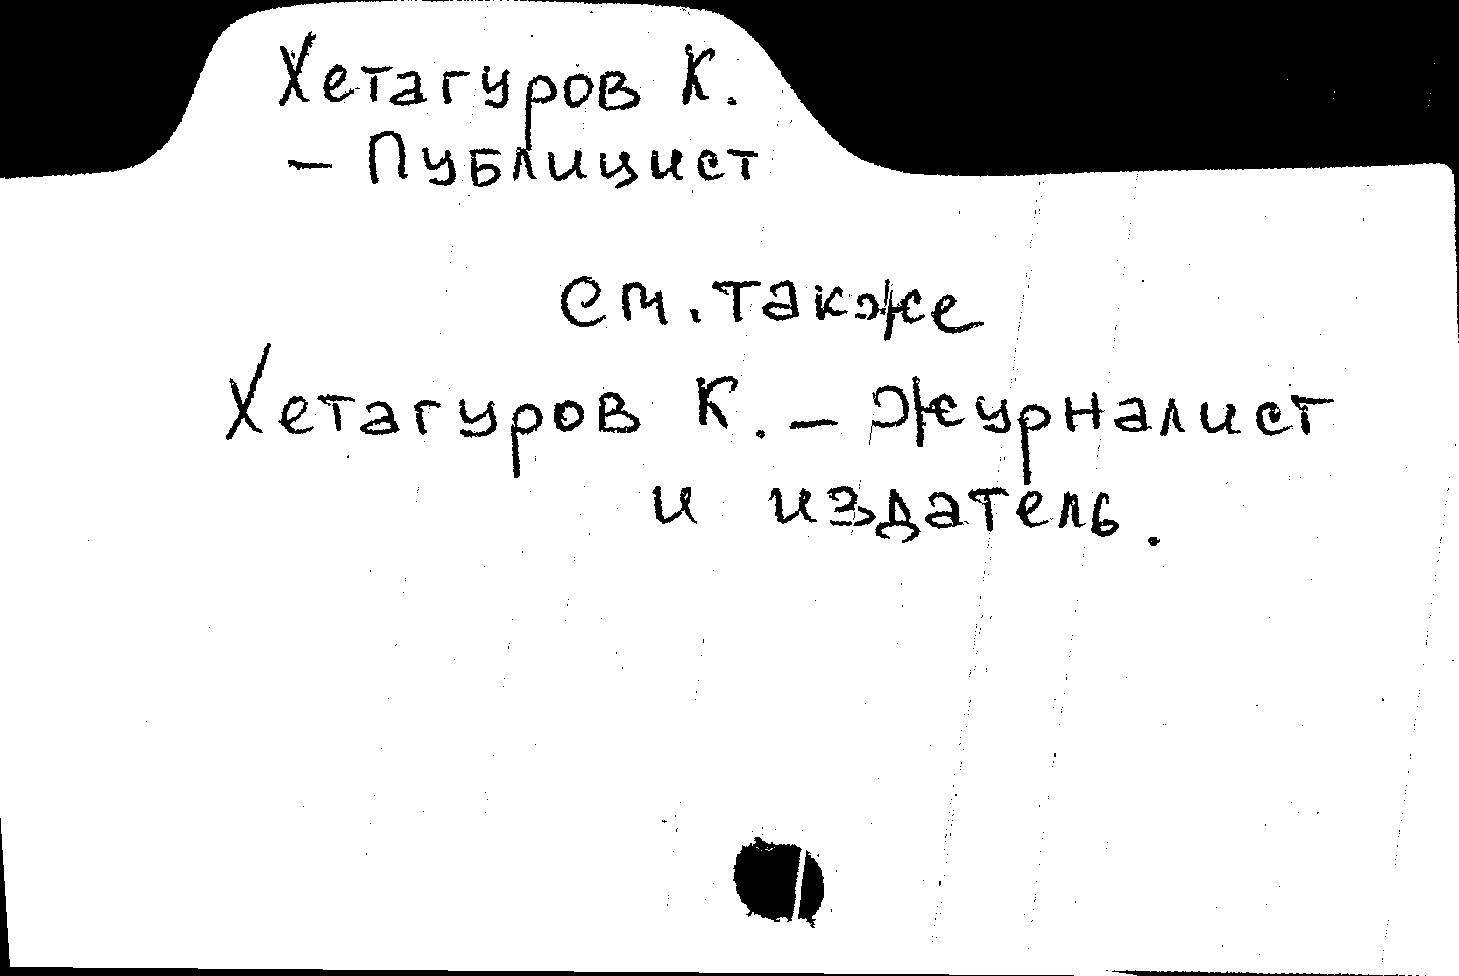 Хетагуров К.
– Публицист
см. также
Хетагуров К. – журналист
и издатель.